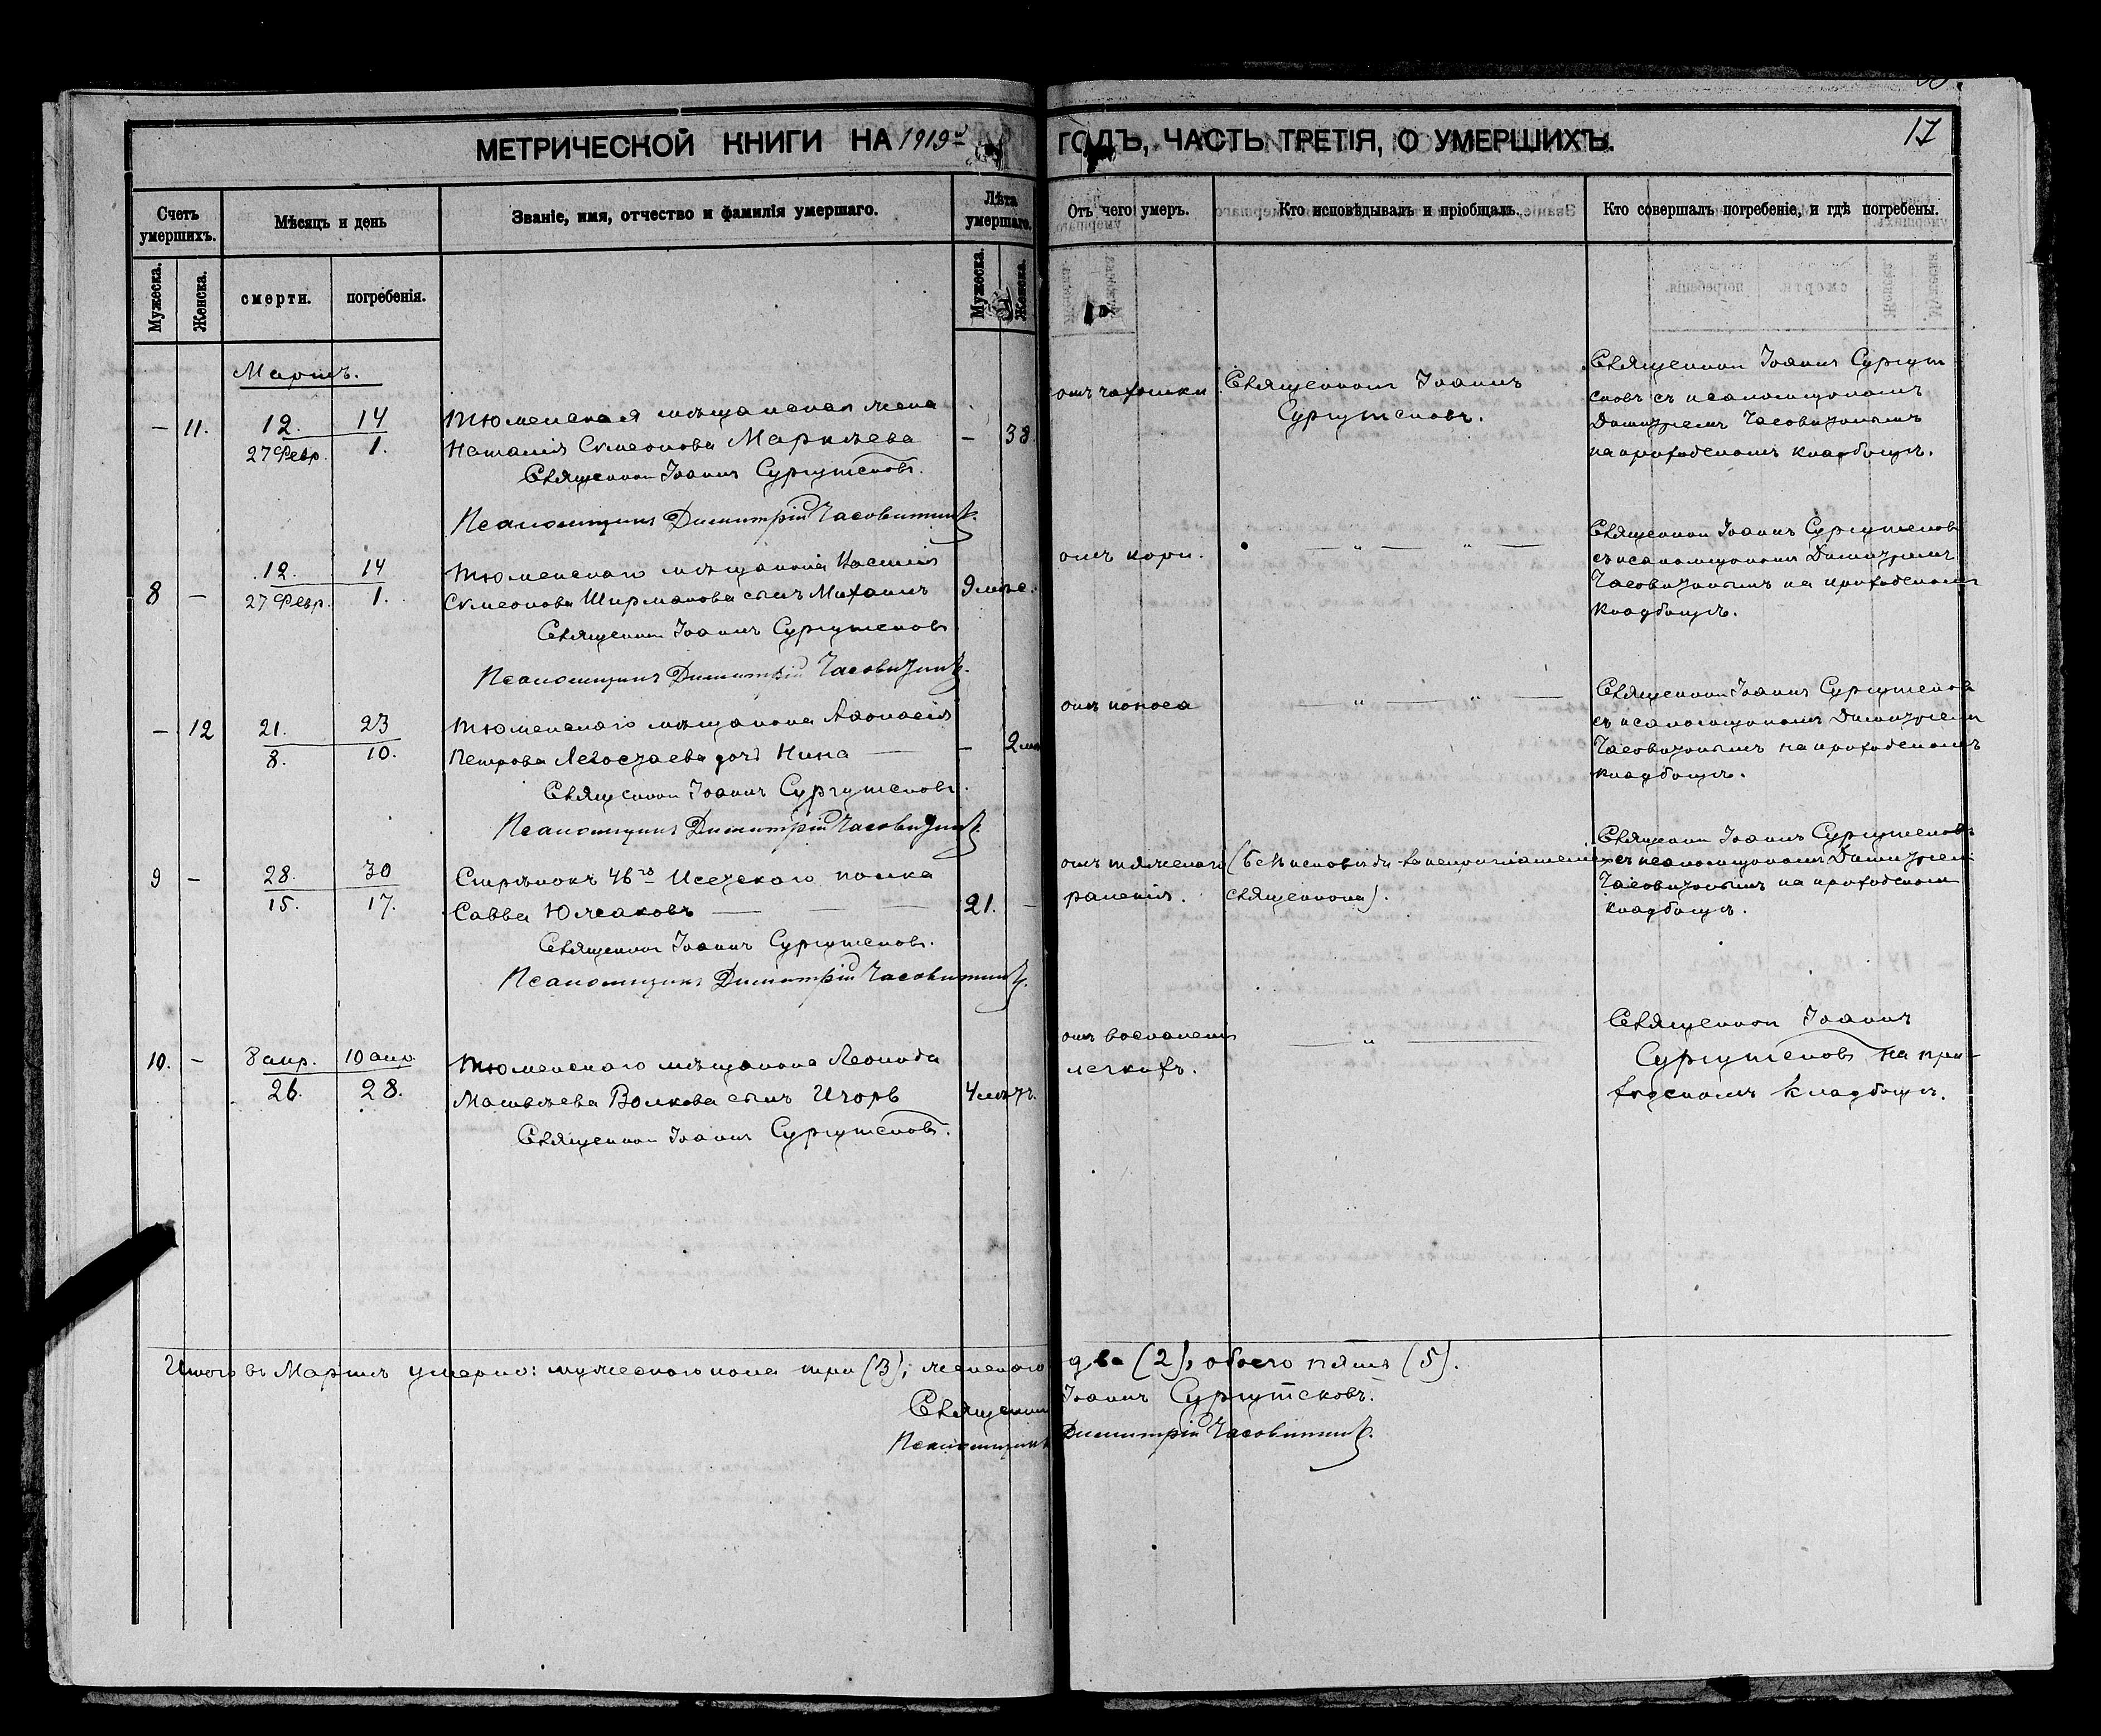 МЕТРИЧЕСКОЙ КНИГИ НА 1919й ГОДЪ, ЧАСТЬ ТРЕТІЯ, О УМЕРШИХЪ.
17
Счетъ умершихъ.
Мѣсяцъ и день
Званіе, имя, отчество и фамилія умершаго.
Лѣта умершаго.
Отъ чего умеръ.
Кто исповѣдывалъ и пріобщалъ.
Кто совершалъ погребеніе, и гдѣ погребены.
Мужеска.
Женска.
смерти.
погребенія.
Мужеска.
Женска.
Мартъ.
— 11. 12. 14 Тюменская мѣщанская жена
27 Февр. 1. Наталія Сѵмеонова — 38.
Священник Іоаннъ Сургутсковъ.
Псаломщикъ Димитрій Часовитинъ.
отъ чахотки
Священникъ Іоаннъ
Сургутсковъ.
Священник Іоаннъ Сургут
сковъ съ псаломщикомъ
Димитріемъ Часовитинымъ
на приходскомъ кладбищѣ.
12. 14 Тюменскаго мѣщанина
8 — 27 Февр. 1. Сѵмеонова Ширманова сынъ Михаилъ 9 мѣс.
Священник Іоаннъ Сургутсковъ
Псаломщикъ Димитрій Часовитинъ.
отъ кори. — „ — „ —
Священник Іоаннъ Сургутсковъ
съ псаломщикомъ Димитріемъ
Часовитинымъ на приходскомъ
кладбищѣ.
— 12 21. 23 Тюменскаго мѣщанина Аѳанасія
8. 10. Петрова дочь Нина — — 2 мѣ
Священник Іоаннъ Сургутсковъ.
Псаломщикъ Димитрій Часовитинъ.
отъ поноса — „ — „ —
Священник Іоаннъ Сургутсковъ
съ псаломщикомъ Димитріемъ
Часовитинымъ на приходскомъ
кладбищѣ.
9 — 28. 30 Стрѣлокъ 46го Исетскаго полка
15. 17. Савва Южаковъ — — — 21. —
Священник Іоаннъ Сургутсковъ.
Псаломщикъ Димитрій Часовитинъ.
отъ тяжелаго
раненія.
(безъ исповѣди за неприглашеніемъ
священника).
Священник Іоаннъ Сургутсковъ
съ псаломщикомъ Димитріем
Часовитинымъ на приходском
кладбищѣ.
10. — 8 апр. 10 апр. Тюменскаго мѣщанина Леонида
26. 28. Матвѣева Волкова сынъ Игорь 4 мѣс.
Священник Іоаннъ Сургутсковъ.
отъ воспаленія
легкихъ.
— „ —
Священник Іоаннъ
Сургутсковъ на при-
ходскомъ кладбищѣ.
Итого въ Мартѣ умерло: мужескаго пола три (3); женскаго два (2), обоего пять (5).
Священник Іоаннъ Сургутсковъ.
Псаломщикъ Димитрій Часовитинъ.